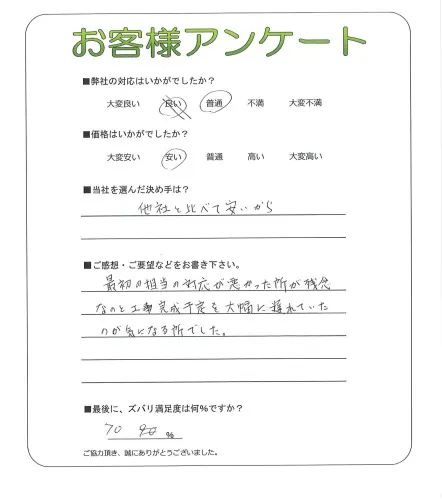 お客様アンケート
■弊社の対応はいかがでしたか？
大変良い 良い 普通 不満 大変不満
■価格はいかがでしたか？
大変安い 安い 普通 高い 大変高い
■当社を選んだ決め手は？
他社と比べて安いから
■ご感想・ご要望などをお書き下さい。
最初の担当の対応が悪かった所が残念
なのと工事完成予定を大幅に遅れていた
のが気になる所でした。
■最後に、ズバリ満足度は何%ですか？
70 90 %
ご協力頂き、誠にありがとうございました。